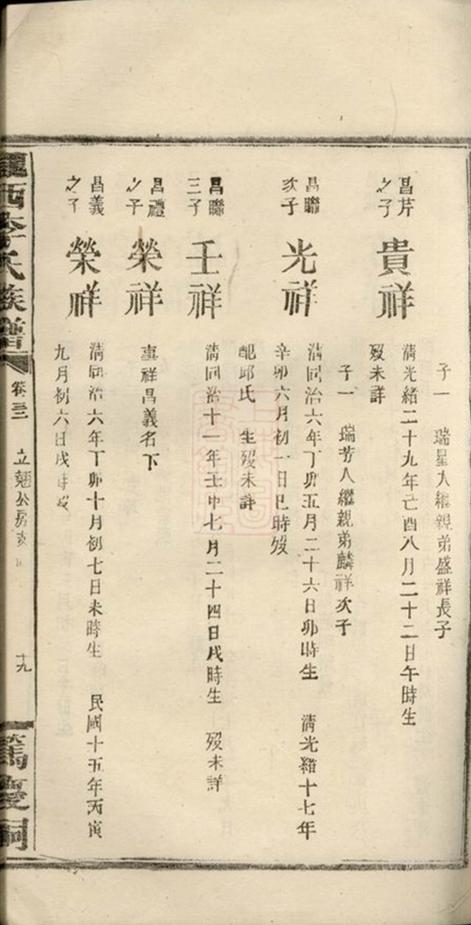 子一 瑞星入繼親弟盛祥長子
昌芹之子 貴祥 清光緒二十九年己酉八月二十二日午時生
歿未詳
子一 瑞芳入繼親弟麟祥次子
昌聯次子 光祥 清同治六年丁卯五月二十六日卯時生 清光緒十七年
辛卯六月初一日巳時歿
配邱氏 生歿未詳
昌聯三子 壬祥 清同治十一年壬申七月二十四日戌時生 歿未詳
昌禮之子 榮祥 事祥昌義名下
昌義之子 榮祥 清同治六年丁卯十月初七日未時生 民國十五年丙寅
九月初六日戌時歿
隴西李氏族譜 卷三 立翹公房 十九 篤慶祠